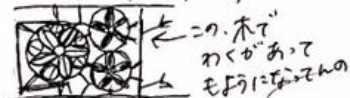 この、木で
わくがあって
もようになってんの